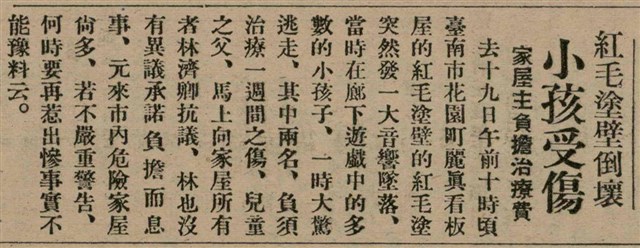 紅毛塗壁倒壞
小孩受傷
家屋主負擔治療費
去十九日午前十時頃
臺南市花園町麗眞看板
屋的紅毛塗壁的紅毛塗
突然發一大音響墜落、
當時在廊下遊戲中的多
數的小孩子、一時大驚
逃走、其中兩名、負須
治療一週間之傷、兒童
之父、馬上向家屋所有
者林濟卿抗議、林也沒
有異議承諾負擔而息
事、元來市內危險家屋
尙多、若不嚴重警告、
何時要再惹出慘事實不
能豫料云。